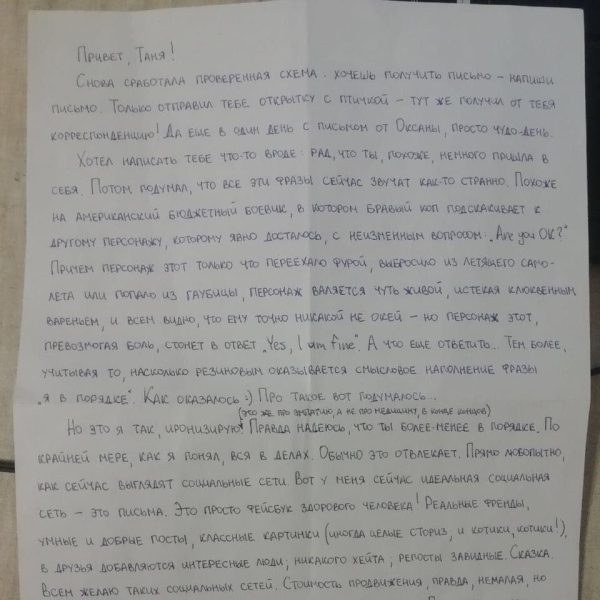 Привет, Таня!
Снова сработала проверенная схема: хочешь получить письмо – напиши
письмо. Только отправил тебе открытку с птичкой – тут же получил от тебя
корреспонденцию! Да еще в один день с письмом от Оксаны, просто чудо-день.
Хотел написать тебе что-то вроде: рад, что ты, похоже, немного пришла в
себя. Потом подумал, что все эти фразы сейчас звучат как-то странно. Похоже
на американский бюджетный боевик, в котором бравый коп подскакивает к
другому персонажу, которому явно досталось, с неизменным вопросом: „Are you OK?"
Причем персонаж этот только что переехало фурой, выбросило из летящего само-
лета или попало из гаубицы, персонаж валяется чуть живой, истекая клюквенным
вареньем, и всем видно, что ему точно никакой не окей – но персонаж этот,
превозмогая боль, стонет в ответ „Yes, I am fine". А что еще ответить... Тем более,
учитывая то, насколько резиновым оказывается смысловое наполнение фразы
„я в порядке". Как оказалось :) Про такое вот подумалось...
(это же про эмпатию, а не про медицину, в конце концов)
Но это я так, иронизирую. Правда надеюсь, что ты более-менее в порядке. По
крайней мере, как я понял, вся в делах. Обычно это отвлекает. Прямо любопытно,
как сейчас выглядят социальные сети. Вот у меня сейчас идеальная социальная
сеть – это письма. Это просто фейсбук здорового человека! Реальные френды,
умные и добрые посты, классные картинки (иногда целые сториз, и котики, котики!),
в друзья добавляются интересные люди, никакого хейта, репосты завидные. Сказка.
Всем желаю таких социальных сетей. Стоимость продвижения, правда, немалая, но